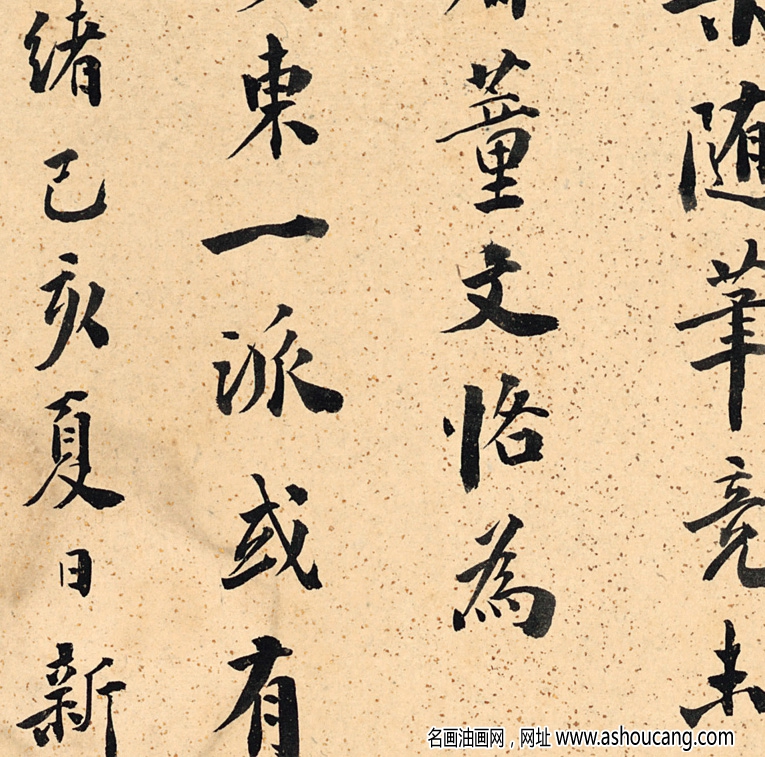 随筆竟未
董文恪為
東一派或有
緒己亥夏日新
名画油画网，网址 www.ashoucang.com